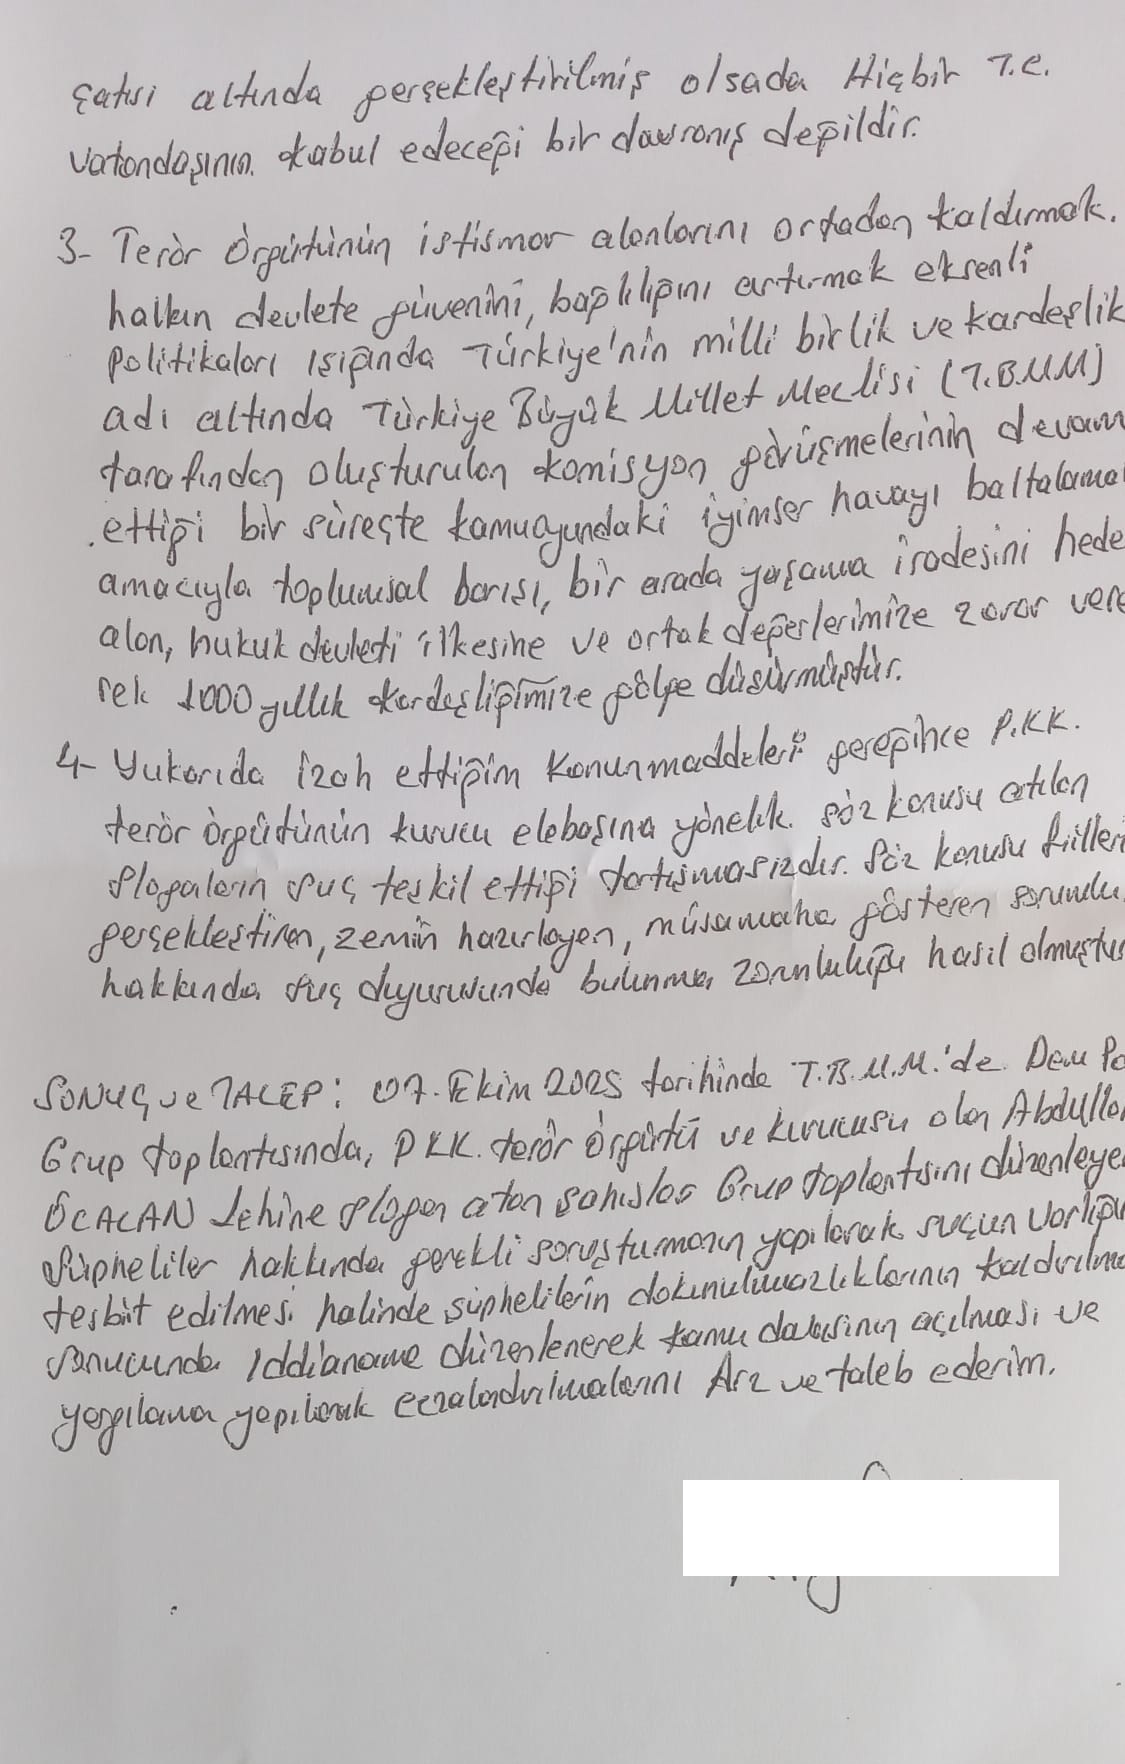 çatısı altında gerçekleştirilmiş olsada Hiçbir T.C.
vatandaşının kabul edeceği bir davranış değildir.
3- Terör Örgütünün istismar alanlarını ortadan kaldırmak.
halkın devlete güvenini, bağlılığını artırmak eksenli
politikaları ışığında Türkiye'nin milli birlik ve kardeşlik
adı altında Türkiye Büyük Millet Meclisi (T.B.M.M)
tarafından oluşturulan komisyon görüşmelerinin devam
ettiği bir süreçte kamuoyundaki iyimser havayı baltalama
amacıyla toplumsal barışı, bir arada yaşama iradesini hede
alan, hukuk devleti ilkesine ve ortak değerlerimize zarar vere
rek 1000 yıllık kardeşliğimize gölge düşürmüştür.
4- Yukarıda izah ettiğim Kanun maddeleri gereğince P.KK.
terör örgütünün kurucu elebaşına yönelik söz konusu atılan
slogaların suç teşkil ettiği tartışmasızdır. Söz konusu fiilleri
gerçekleştiren, zemin hazırlayan, müsamaha gösteren sorumlu
hakkında suç duyurusunda bulunma zorunluluğu hasıl olmuştur
SONUÇ ve TALEP: 07. Ekim 2025 tarihinde T.B.M.M.'de Dem Pa
Grup toplantısında, PKK. terör örgütü ve kurucusu olan Abdulla
ÖCALAN Lehine slogan atan şahıslar Grup toplantısını düzenleye
Şüpheliler hakkında gerekli soruşturmanın yapılarak suçun varlığı
tesbit edilmesi halinde şüphelilerin dokunulmazlıklarının kaldırılma
sonucunda Iddianame düzenlenerek kamu davasının açılması ve
yargılama yapılarak cezalandırılmalarını Arz ve taleb ederim.